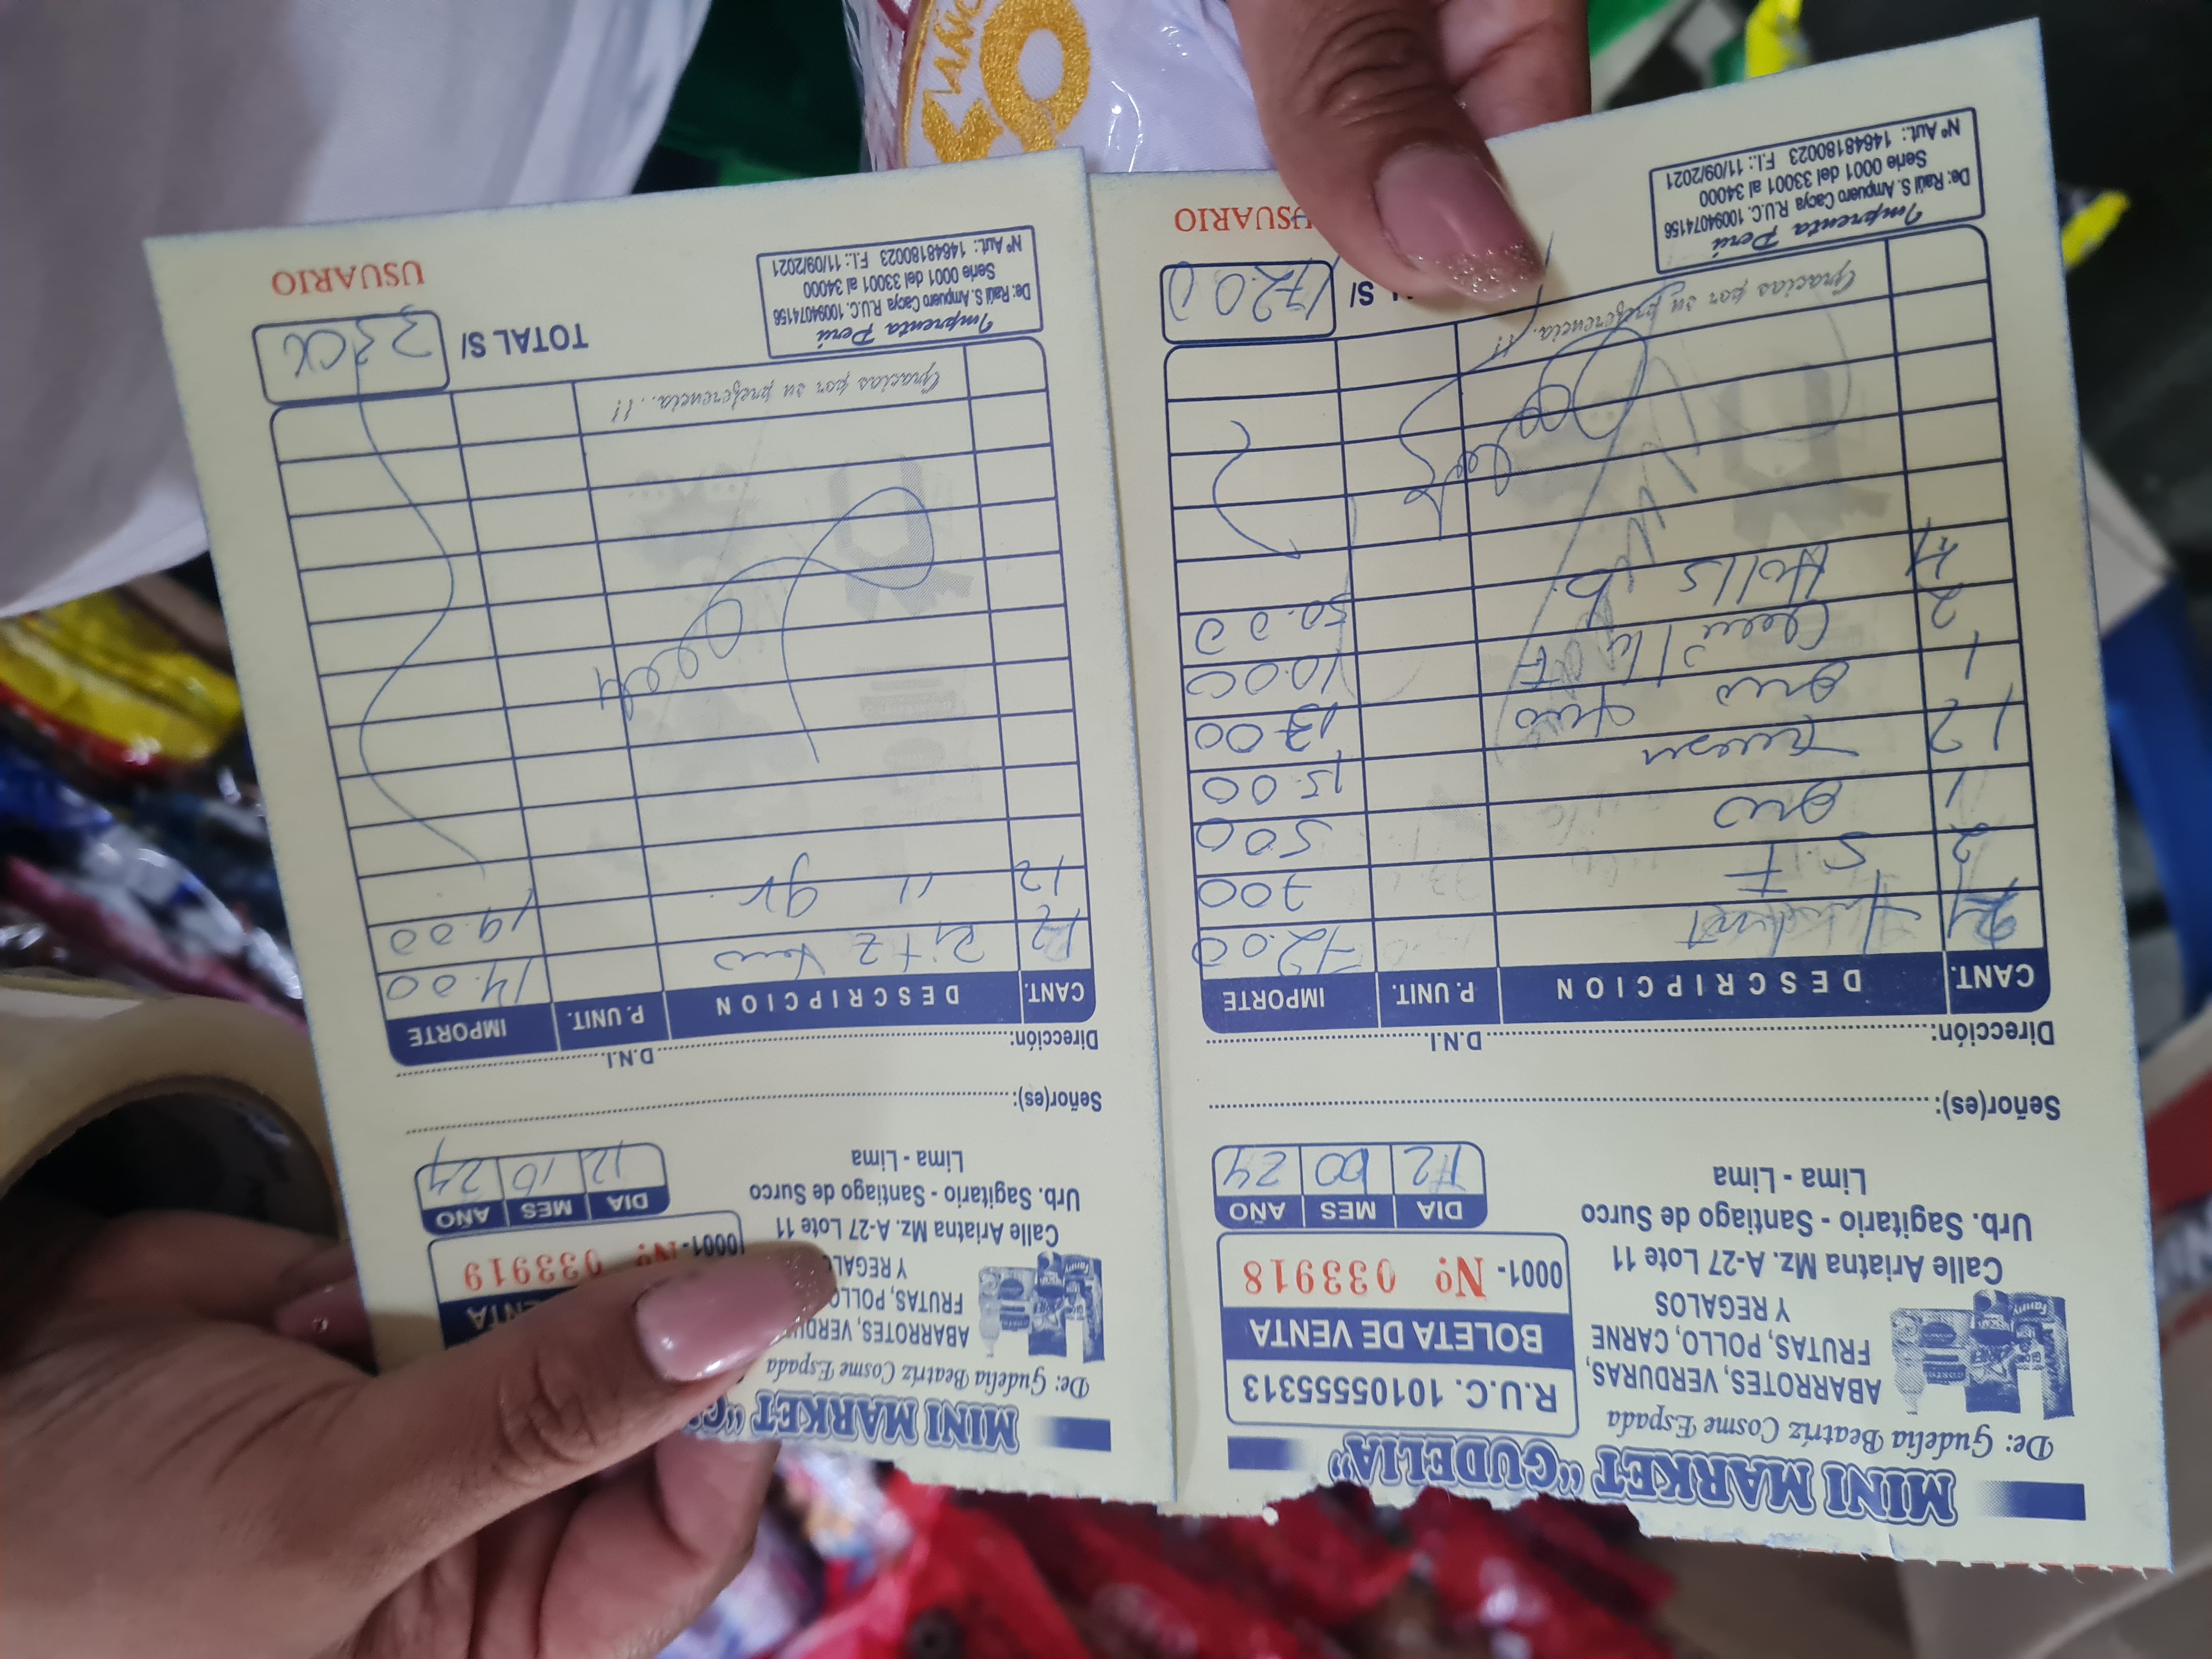 MINI MARKET "GUDELIA"
De: Gudelia Beatríz Cosme Espada
ABARROTES, VERDURAS,
FRUTAS, POLLO, CARNE
Y REGALOS
Calle Ariatna Mz. A-27 Lote 11
Urb. Sagitario - Santiago de Surco
Lima - Lima
R.U.C. 10105555313
BOLETA DE VENTA
0001- Nº 033918
DIA MES AÑO
12 10 24
Señor(es):
Dirección: D.N.I.
CANT. DESCRIPCION P. UNIT. IMPORTE
24 72.00
2 S. F 700
1 500
12 15.00
1 13.00
2 10.00
4 Halls b. 50.00
Gracias por su preferencia..!!
S/ 172.00
Imprenta Perú
De: Raúl S. Ampuero Cacya R.U.C. 10094074156
Serie 0001 del 33001 al 34000
Nº Aut.: 14648180023 F.I.: 11/09/2021
USUARIO
MINI MARKET
De: Gudelia Beatríz Cosme Espada
ABARROTES,
FRUTAS,
Y
Calle Ariatna Mz. A-27 Lote 11
Urb. Sagitario - Santiago de Surco
Lima - Lima
0001- Nº 033919
DIA MES AÑO
12 10 24
Señor(es):
Dirección: D.N.I.
CANT. DESCRIPCION P. UNIT. IMPORTE
12 Ritz 14.00
12 " gr. 19.00
Gracias por su preferencia..!!
TOTAL S/ 3300
Imprenta Perú
De: Raúl S. Ampuero Cacya R.U.C. 10094074156
Serie 0001 del 33001 al 34000
Nº Aut.: 14648180023 F.I.: 11/09/2021
USUARIO